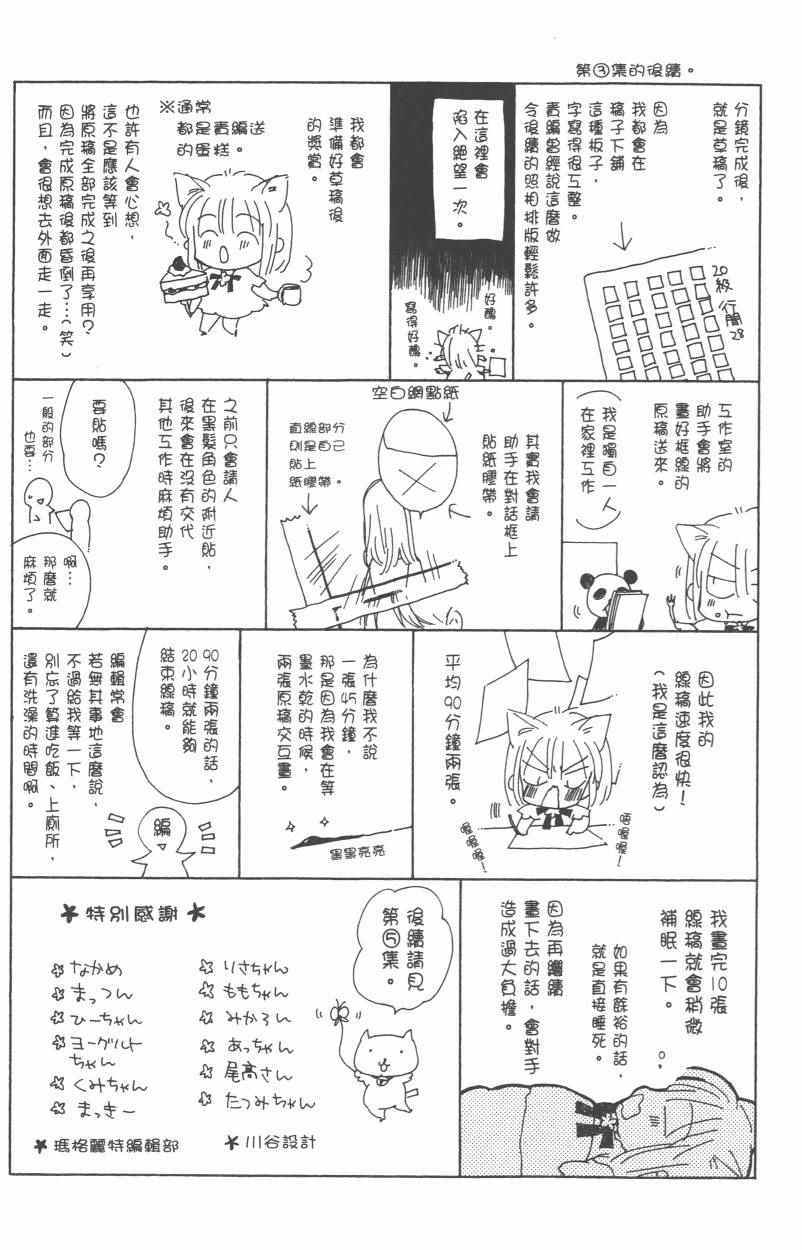 第③集的後續。
分鏡完成後，
就是草稿了。
因為
我都會在
稿子下舖
這種板子，
字寫得很工整。
責編曾經說這麼做
令後續的照相排版輕鬆許多。
20級 行間28
在這裡會
陷入絕望一次。
好醜。
寫得好醜。
我都會
準備好草稿後
的獎賞。
※通常
都是責編送
的蛋糕。
也許有人會心想，
這不是應該等到
將原稿全部完成之後再享用？
因為完成原稿後都昏倒了…(笑)
而且，會很想去外面走一走。
工作室的
助手會將
畫好框線的
原稿送來。
(我是獨自一人
在家裡工作)
其實我會請
助手在對話框上
貼紙膠帶。
空白網點紙
直線部分
則是自己
貼上
紙膠帶。
之前只會請人
在黑髮角色的附近貼，
後來會在沒有交代
其他工作時麻煩助手。
要貼嗎？
一般的部分
也要…
啊…
那麼就
麻煩了。
因此我的
線稿速度很快！
(我是這麼認為)
唔喔喔！
喔喔喔！
平均90分鐘兩張。
為什麼我不說
一張45分鐘，
那是因為我會在等
墨水乾的時候，
兩張原稿交互畫。
黑黑亮亮
90分鐘兩張的話，
20小時就能夠
結束線稿。
編
編輯常會
若無其事地這麼說，
不過給我等一下，
別忘了算進吃飯、上廁所，
還有洗澡的時間啊。
我畫完10張
線稿就會稍微
補眠一下。
如果有餘裕的話，
就是直接睡死。
因為再繼續
畫下去的話，會對手
造成過大負擔。
後續請見
第⑤集。
★特別感謝★
りさちゃん
ももちゃん
みかろん
あっちゃん
尾高さん
たつみちゃん
なかめ
まっつん
ひーちゃん
ヨーグルト
ちゃん
くみちゃん
まっきー
★川谷設計
★瑪格麗特編輯部